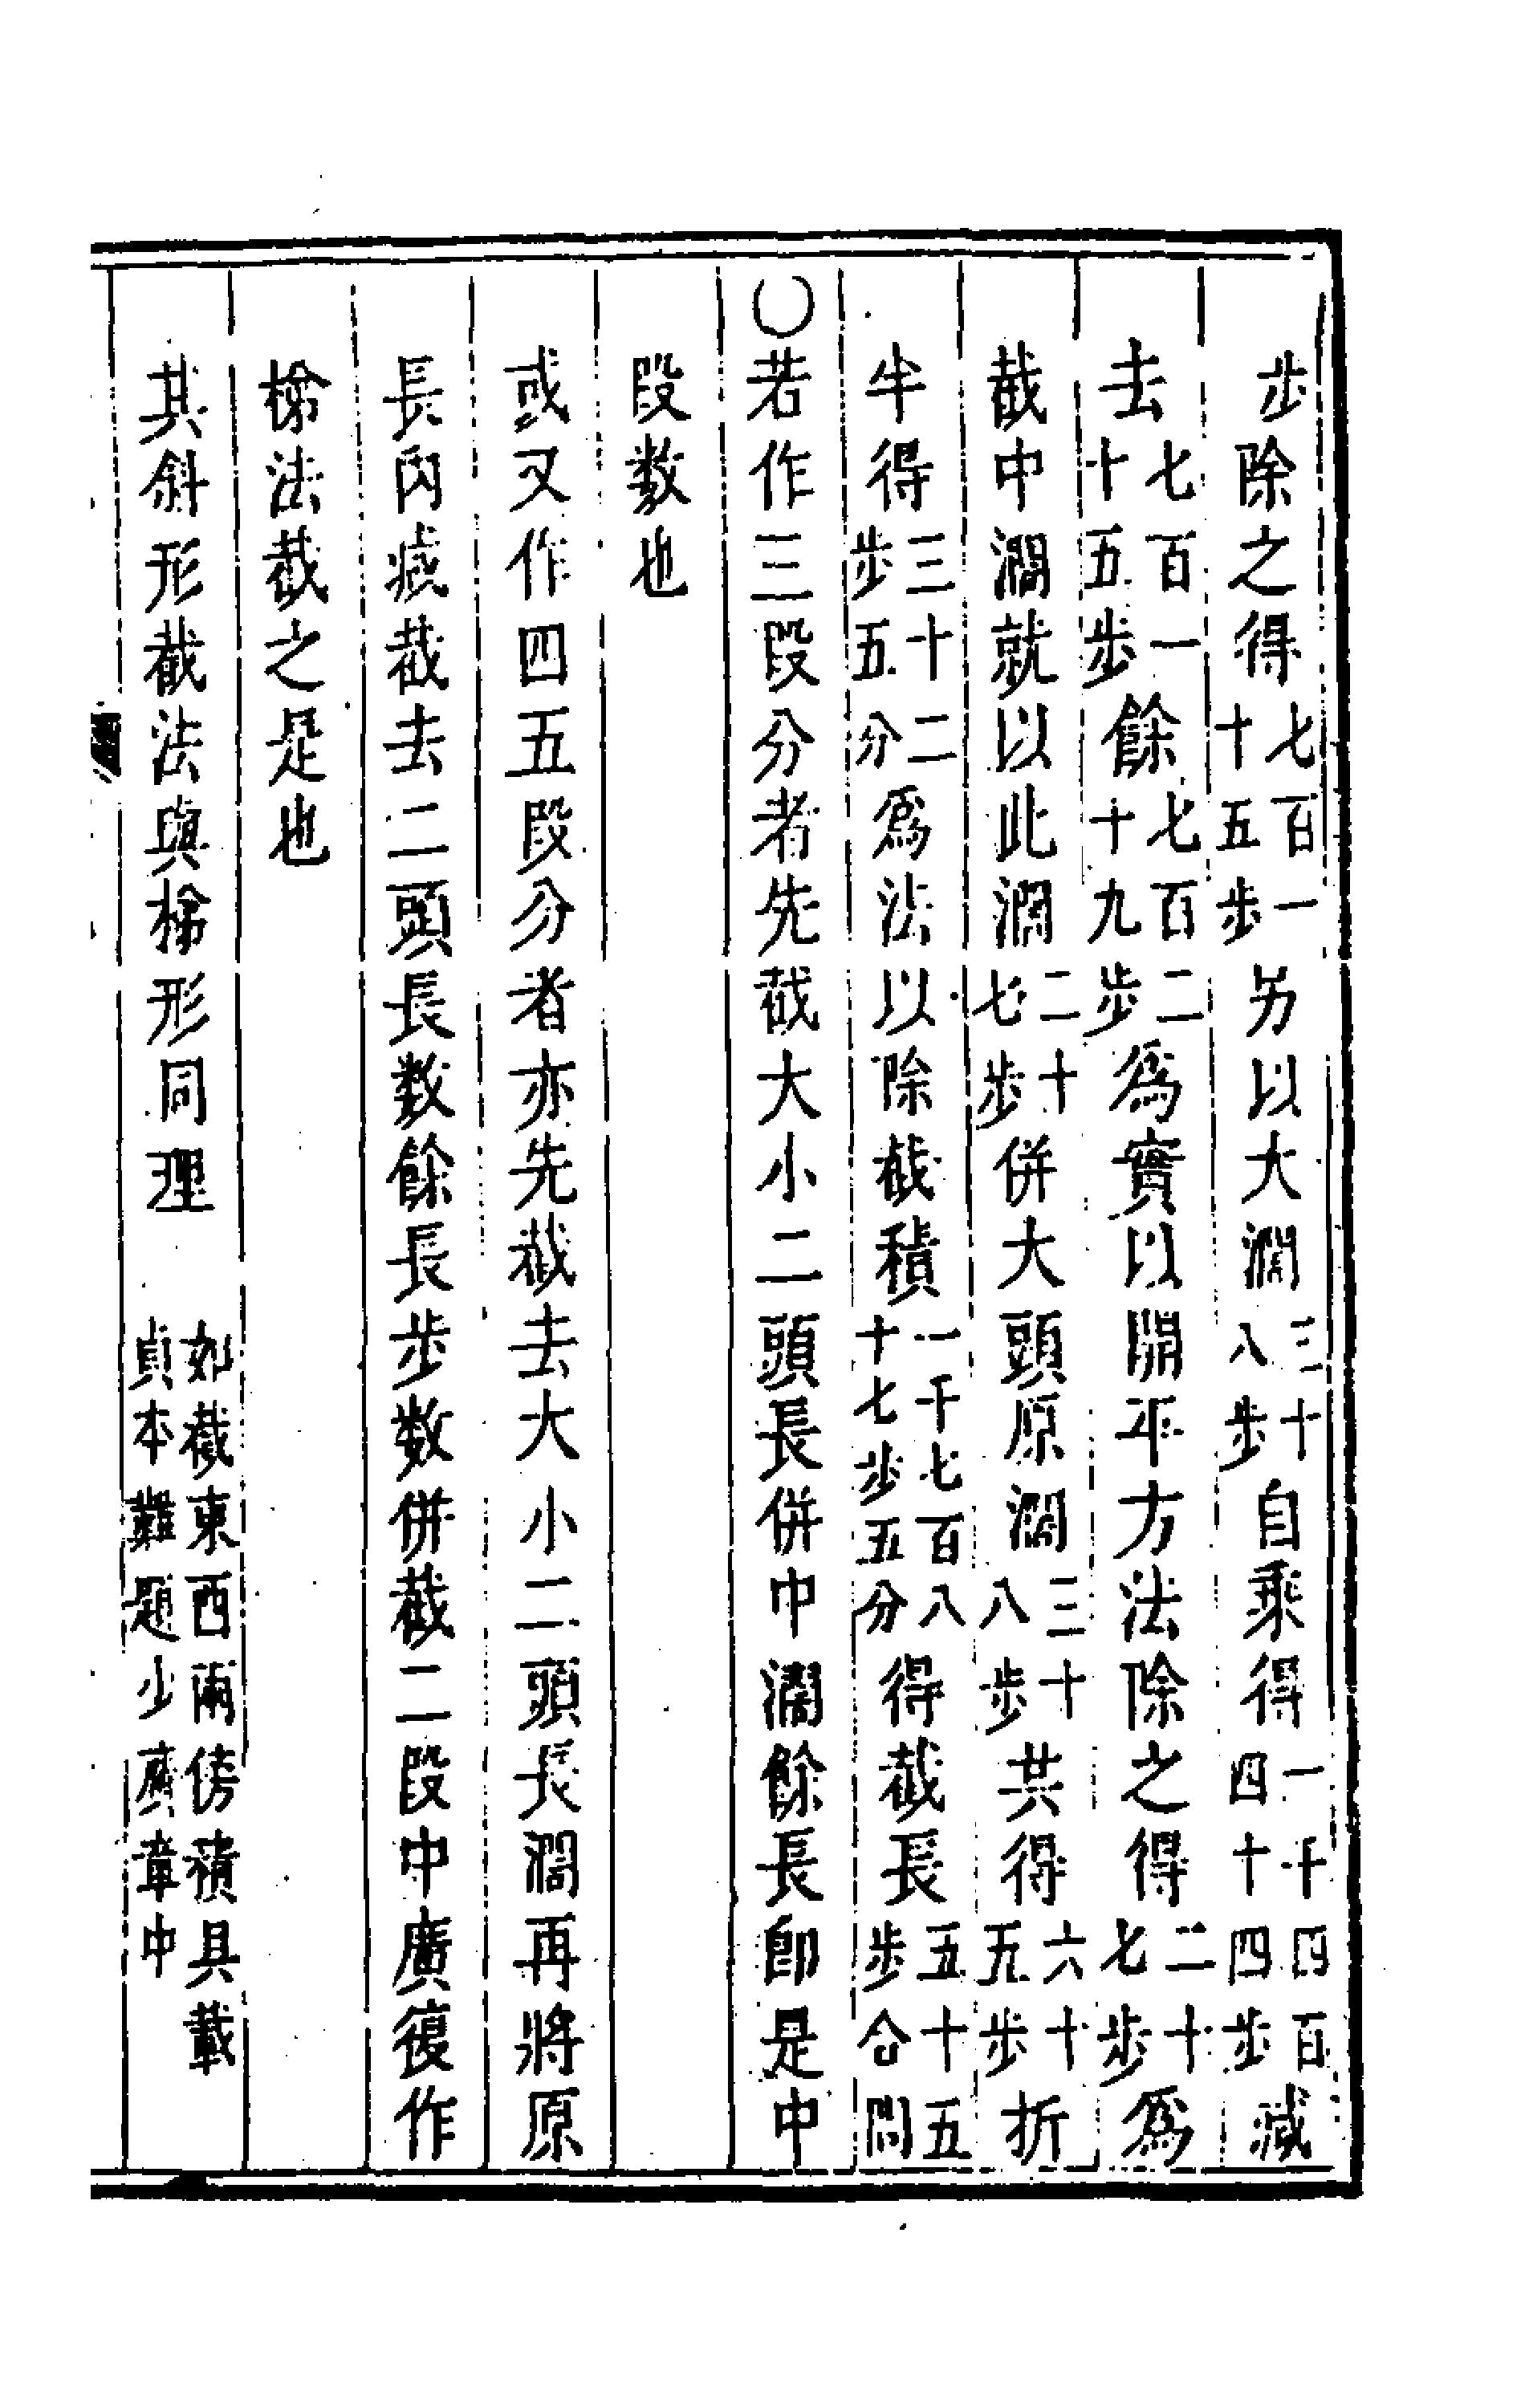 步除之得七百一十五步另以大濶三十八步自乘得一千四百四十四步減
去七百一十五步餘七百二十九步爲實以開平方法除之得二十七步爲
截中濶就以此濶二十七步併大頭原濶三十八步共得六十五步折
半得三十二步五分爲法以除截積一千七百八十七步五分得截長五十五步合問
〇若作三段分者先截大小二頭長併中濶餘長卽是中
段数也
或又作四五段分者亦先截去大小二頭長濶再將原
長內減截去二頭長数餘長步数併截二段中廣復作
梯法截之是也
其斜形截法與梯形同理 如截東西兩傍積具載貞本難題少廣章中